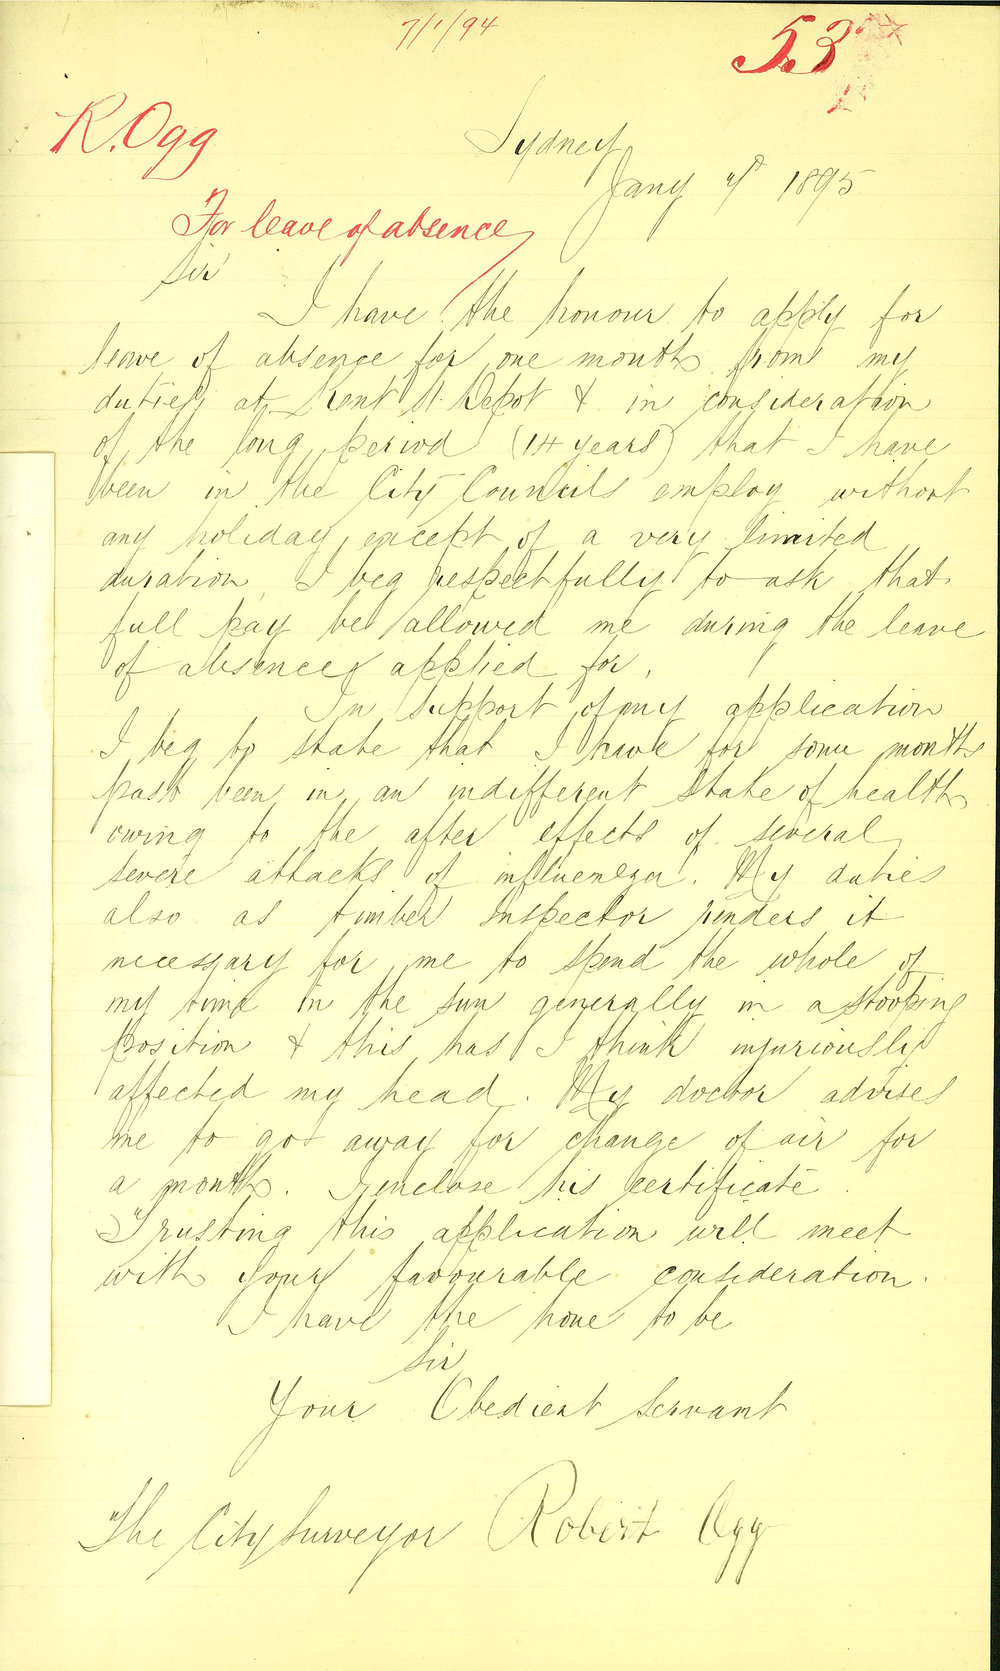 7/1/94
53
R. Ogg
Sydney
Jany 7th 1895
For leave of absence
Sir
I have the honour to apply for
leave of absence for one month from my
duties at Kent St. Depot & in consideration
of the long period (14 years) that I have
been in the City Councils employ without
any holiday except of a very limited
duration, I beg respectfully to ask that
full pay be allowed me during the leave
of absence applied for.
In support of my application
I beg to state that I have for some months
past been in an indifferent state of health
owing to the after effects of several
severe attacks of influenza. My duties
also as timber Inspector renders it
necessary for me to spend the whole of
my time in the sun generally in a stooping
position & this has I think injuriously
affected my head. My doctor advises
me to go away for change of air for
a month. I enclose his certificate.
Trusting this application will meet
with your favourable consideration.
I have the hone to be
Sir
Your Obedient Servant
The City Surveyor Robert Ogg